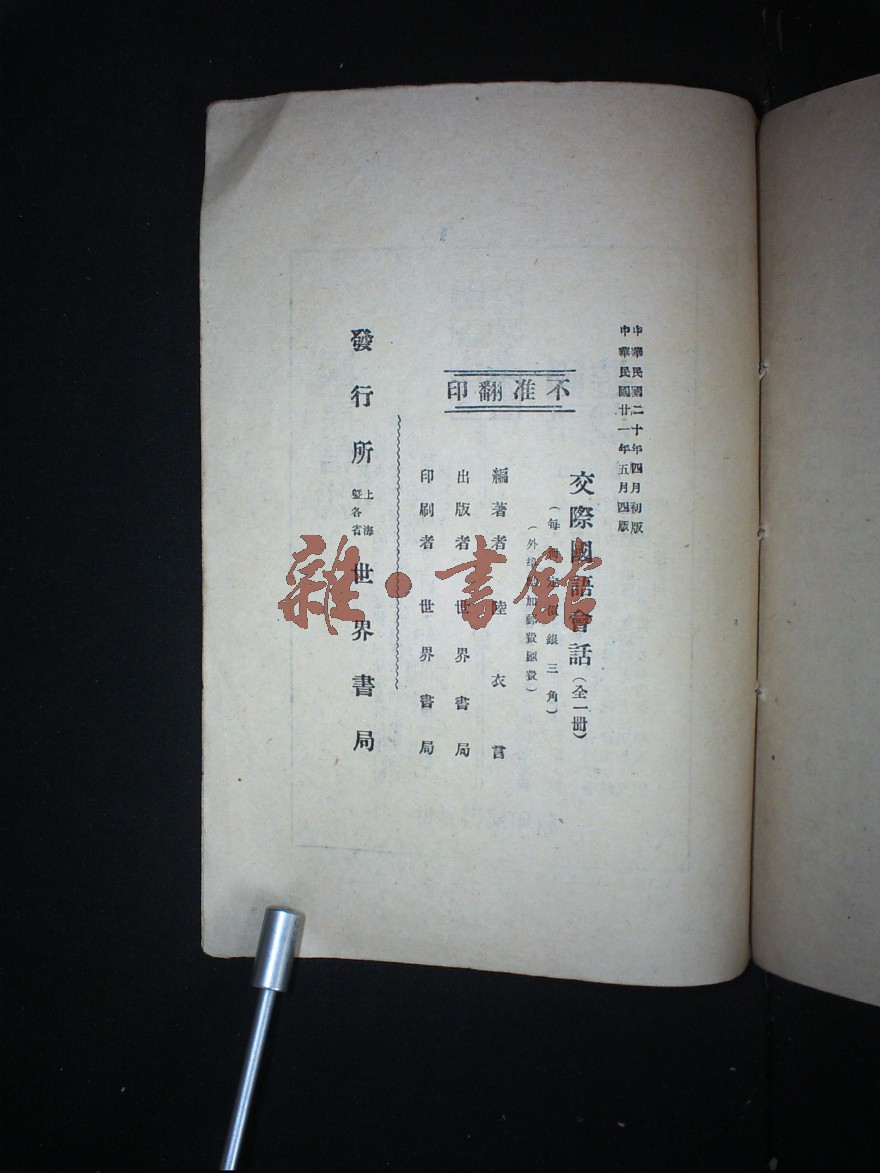 中華民國二十年四月初版
中華民國廿一年五月四版
不准翻印
交際國語會話(全一冊)
(每 價銀三角)
(外埠 加郵費匯費)
編著者 陸衣言
出版者 世界書局
印刷者 世界書局
發行所 上海暨各省 世界書局
雜·書館